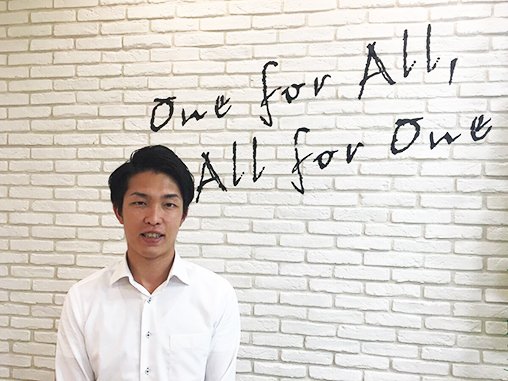 One for All,
All for One